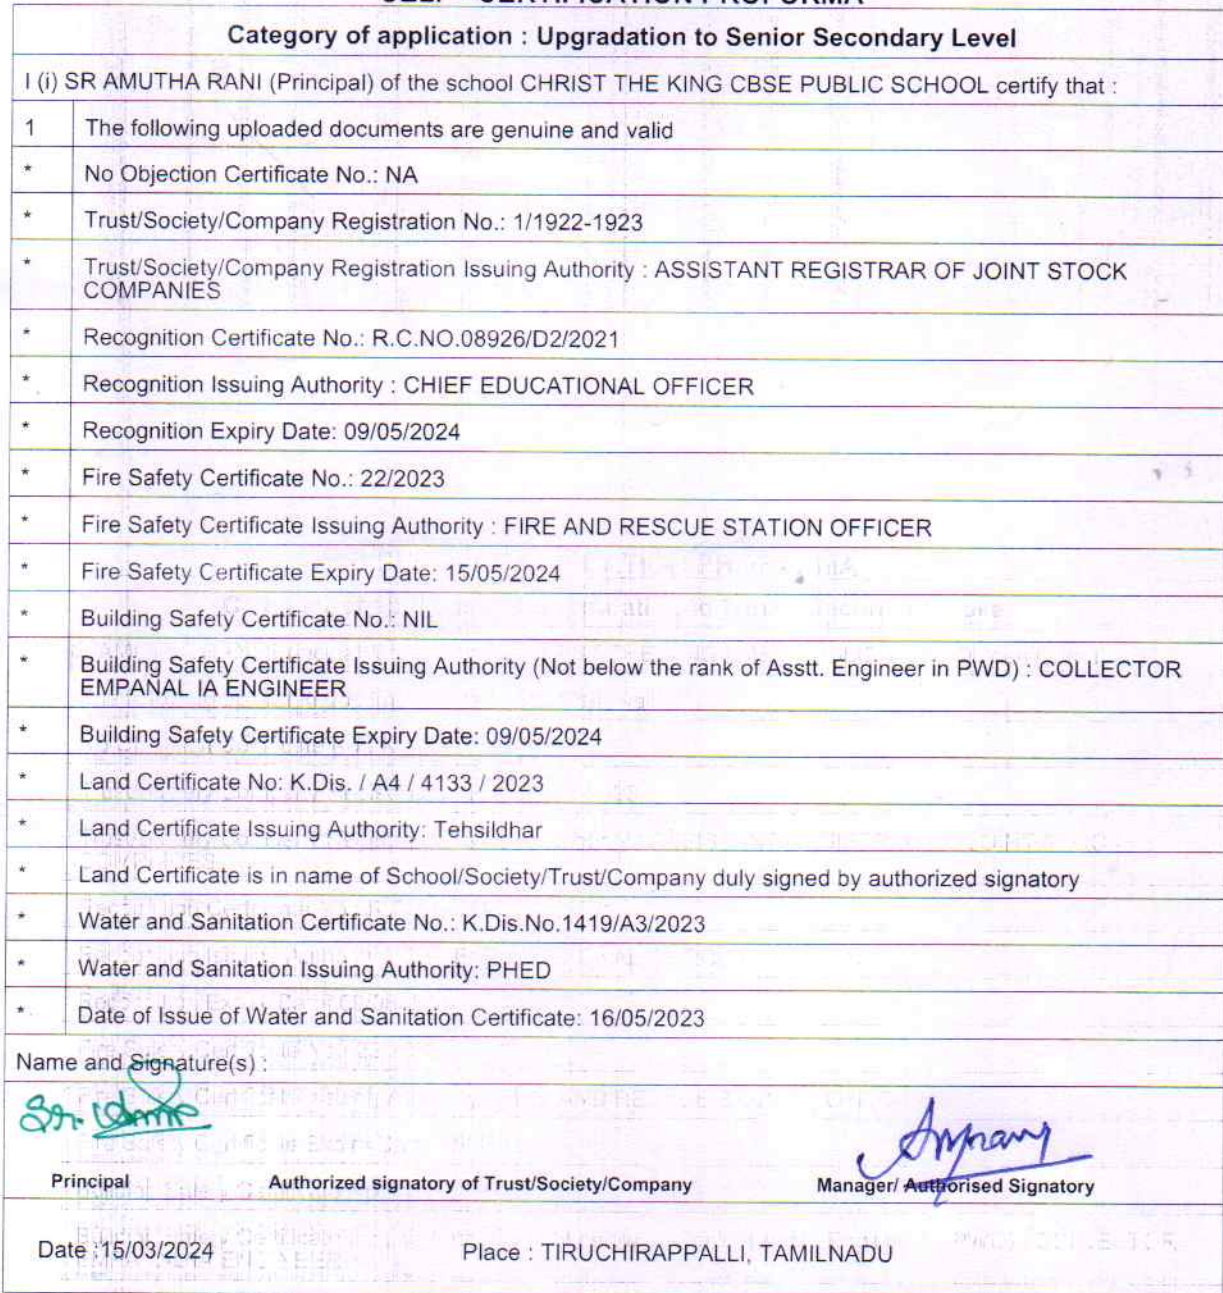 SELF - CERTIFICATION PROFORMA
Category of application : Upgradation to Senior Secondary Level
I (i) SR AMUTHA RANI (Principal) of the school CHRIST THE KING CBSE PUBLIC SCHOOL certify that :
1 The following uploaded documents are genuine and valid
* No Objection Certificate No.: NA
* Trust/Society/Company Registration No.: 1/1922-1923
* Trust/Society/Company Registration Issuing Authority : ASSISTANT REGISTRAR OF JOINT STOCK
COMPANIES
* Recognition Certificate No.: R.C.NO.08926/D2/2021
* Recognition Issuing Authority : CHIEF EDUCATIONAL OFFICER
* Recognition Expiry Date: 09/05/2024
* Fire Safety Certificate No.: 22/2023
* Fire Safety Certificate Issuing Authority : FIRE AND RESCUE STATION OFFICER
* Fire Safety Certificate Expiry Date: 15/05/2024
* Building Safety Certificate No.: NIL
* Building Safety Certificate Issuing Authority (Not below the rank of Asstt. Engineer in PWD) : COLLECTOR
EMPANAL IA ENGINEER
* Building Safety Certificate Expiry Date: 09/05/2024
* Land Certificate No: K.Dis. / A4 / 4133 / 2023
* Land Certificate Issuing Authority: Tehsildhar
* Land Certificate is in name of School/Society/Trust/Company duly signed by authorized signatory
* Water and Sanitation Certificate No.: K.Dis.No.1419/A3/2023
* Water and Sanitation Issuing Authority: PHED
* Date of Issue of Water and Sanitation Certificate: 16/05/2023
Name and Signature(s) :
Sr.
Principal Authorized signatory of Trust/Society/Company Manager/ Authorised Signatory
Date :15/03/2024 Place : TIRUCHIRAPPALLI, TAMILNADU